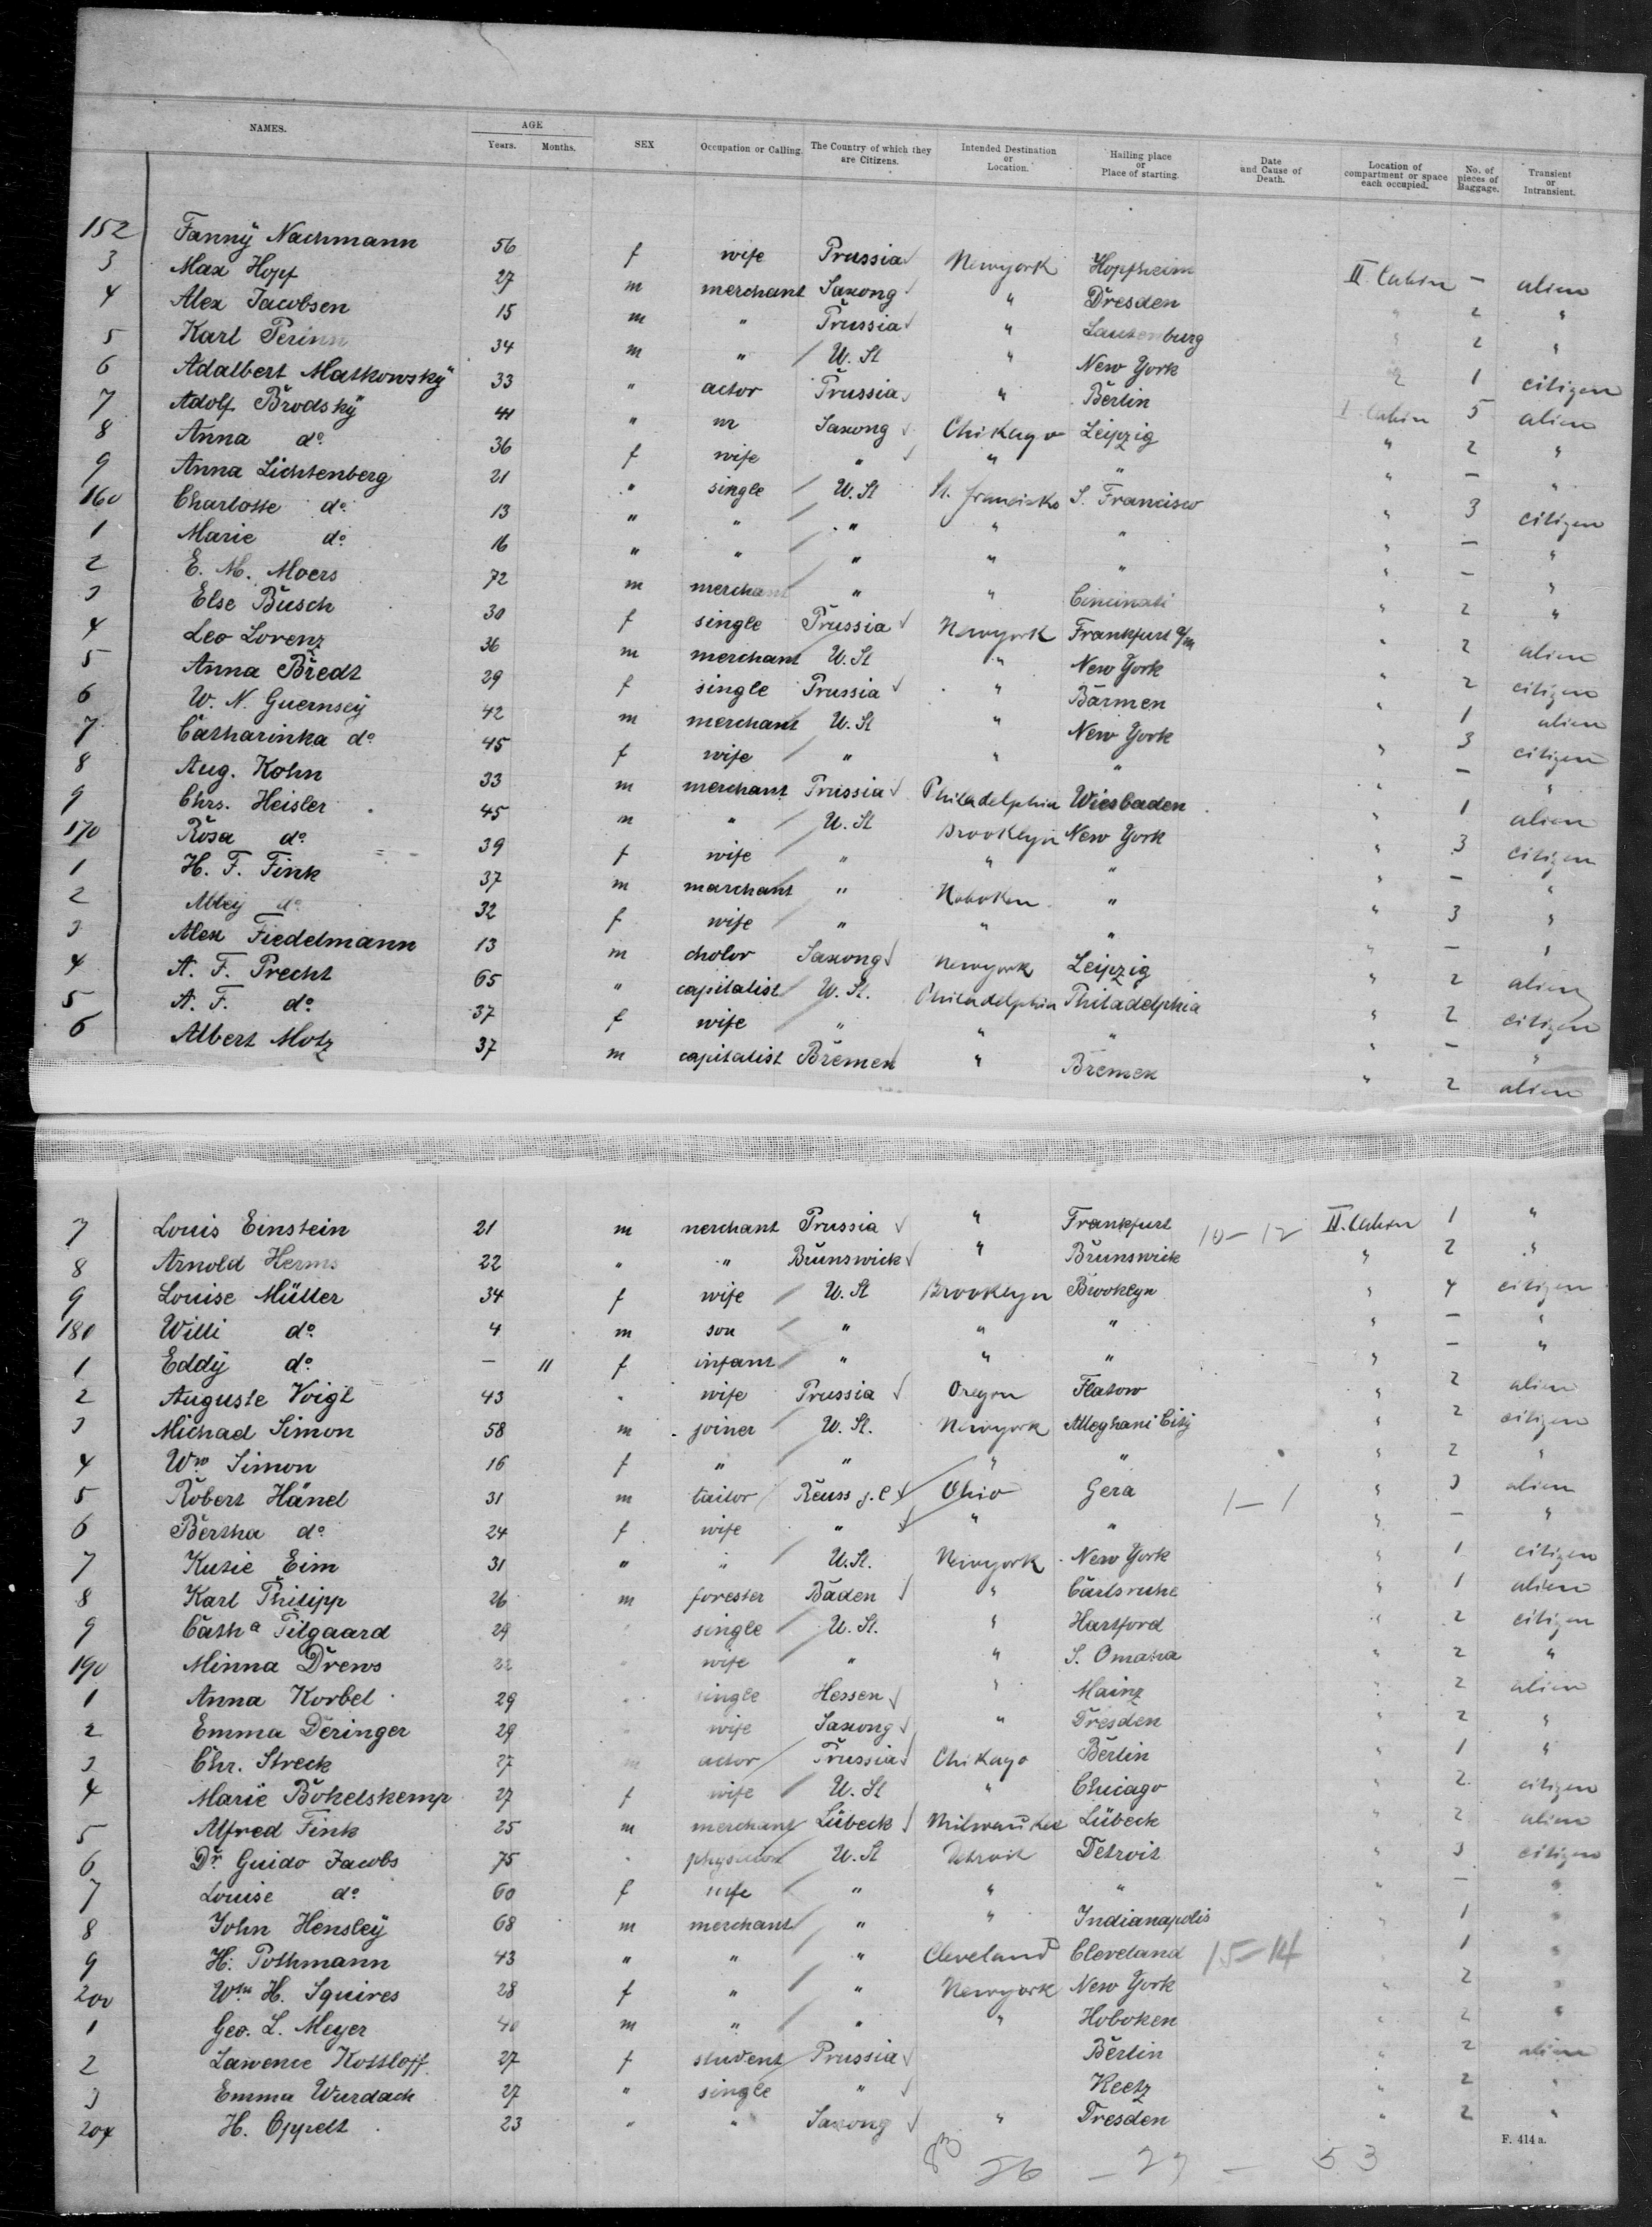 NAMES. AGE SEX Occupation or Calling. The Country of which they are Citizens. Intended Destination or Location. Hailing place or Place of starting. Date and Cause of Death. Location of compartment or space each occupied. No. of pieces of Baggage. Transient or Intransient.
Years. Months.
152 Fanny Nachmann 56 f wife Prussia Newyork Hopfheim II Cabin - alien
3 Max Hopf 27 m merchant Saxony " Dresden " 2 "
4 Alex Jacobsen 15 m " Prussia " Lautenburg " 2 "
5 Karl Perinn 34 m " U. St " New York 1 citizen
6 Adalbert Matkowsky 33 " actor Prussia " Berlin I. Cabin 5 alien
7 Adolf Brodsky 41 " m Saxony Chikago Leipzig " 2 "
8 Anna do 36 f wife " " " " - "
9 Anna Lichtenberg 21 " single U. St St. Francisko S. Francisco " 3 citizen
160 Charlotte do 13 " " " " " " - "
1 Marie do 16 " " " " " " - "
2 E. M. Moers 72 m merchant " " Cincinati " 2 "
3 Else Busch 30 f single Prussia Newyork Frankfurt a/m " 2 alien
4 Leo Lorenz 36 m merchant U. St " New York " 2 citizen
5 Anna Bredt 29 f single Prussia " Barmen " 1 alien
6 W. N. Guernsey 42 m merchant U. St " New York " 3 citizen
7 Catharinka do 45 f wife " " " " - "
8 Aug. Kohn 33 m merchant Prussia Philadelphia Wiesbaden " 1 alien
9 Chrs. Heisler 45 m " U. St Brooklyn New York " 3 citizen
170 Rosa do 39 f wife " " " " - "
1 H. F. Fink 37 m marchant " Hoboken " " 3 "
2 Abbey do 32 f wife " " " " - "
3 Alex Fiedelmann 13 m cholor Saxony Newyork Leipzig " 2 alien
4 A. F. Precht 65 " capitalist U. St. Philadelphia Philadelphia " 2 citizen
5 A. F. do 37 f wife " " " " - "
6 Albert Motz 37 m capitalist Bremen " Bremen " 2 alien
7 Louis Einstein 21 m merchant Prussia " Frankfurt 10-12 II. Cabin 1 "
8 Arnold Herms 22 " " Brunswick " Brunswick " 2 "
9 Louise Müller 34 f wife U. St Brooklyn Brooklyn " 4 citizen
180 Willi do 4 m son " " " " - "
1 Eddy do - 11 f infant " " " " - "
2 Auguste Voigt 43 " wife Prussia Oregon Flatow " 2 alien
3 Michael Simon 58 m joiner U. St. Newyork Alleghani City " 2 citizen
4 Wm Simon 16 f " " " " " 2 "
5 Robert Hänel 31 m tailor Reuss j. L Ohio Gera 1-1 " 3 alien
6 Bertha do 24 f wife " " " " - "
7 Kutie Eim 31 " " U. St. Newyork New York " 1 citizen
8 Karl Philipp 26 m forester Baden " Carlsruhe " 1 alien
9 Catha Pilgaard 29 " single U. St. " Hartford " 2 citizen
190 Minna Drews 22 " wife " " S. Omaha " 2 "
1 Anna Korbel 29 " single Hessen " Mainz " 2 alien
2 Emma Deringer 29 " wife Saxony " Dresden " 2 "
3 Chr. Streck 27 m actor Prussia Chikago Berlin " 1 "
4 Marie Bökelskemp 27 f wife U. St " Chicago " 2 citizen
5 Alfred Fink 25 m merchant Lübeck Milwaukee Lübeck " 2 alien
6 Dr Guido Jacobs 75 " physician U. St Detroit Detroit " 3 citizen
7 Louise do 60 f wife " " " " - "
8 John Hensley 68 m merchant " " Indianapolis " 1 "
9 H. Pothmann 43 " " " Cleveland Cleveland 15-14 1 "
200 Wm H. Squires 28 f " " Newyork New York " 2 "
1 Geo. L. Meyer 40 m " " " Hoboken " 2 "
2 Lawence Kottloff 27 f student Prussia Berlin " 2 alien
3 Emma Wurdach 27 " single " Keetz " 2 "
204 H. Oppelt 23 " " Saxony " Dresden " 2 "
F. 414 a.
26 - 27 - 53